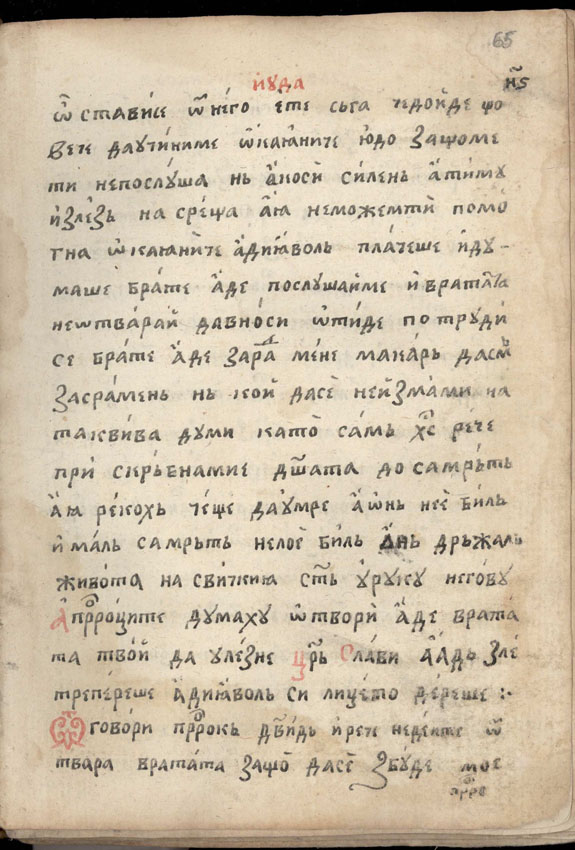 65
июда
н҃ѕ
ѿ ставише ѿ него ете сьга чедойде чо
веке даучиниме ѡкаꙗните юдо зачоме
ти непослуша нь акоси силень атиму
излезь на среща аꙗ неможемти помо
гна ѡкаꙗните адиꙗволь плачеше иду-
маше брате аде послушайме и вратата
неѿтварай давноси ѿиде потруди
се брате аде зарад мене макарь дасмь
засрамень нь кой дасе неизмами на
таквива думи като самь хс҃ рече
при скрьбнамие дш҃ата до самрьть
аꙗ рекохь чеще даумре аѡнь нее биль
ималь самрьть нелое биль ѡнь дрьжаль
живота на свичкиꙗ свѣть уруку негову
апр҃роците думаху ѿтвори аде врата
та твои да улезне цр҃ь слави аадь зле
трепереше адиꙗволь си лицето дереше :·
Ѿговори пр҃рокь дв҃идь ирече недеите ѿ
твара вратата защо дасе збуде мое
прⷪ҇ро